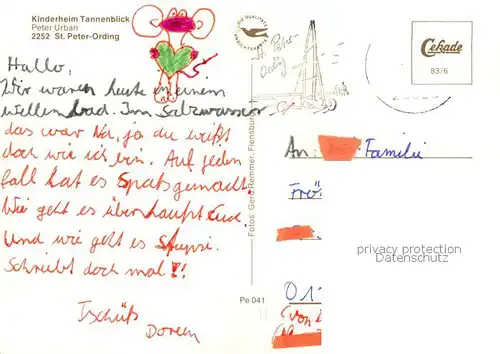 Kinderheim Tannenblick
Peter Urban
2252 St. Peter-Ording
Hallo,
Wir waren heute in einem
wellenbad. Im Salzwasser
das war Na, ja du weißt
doch wie ich bin. Auf jeden
fall hat es Spaß gemacht.
Wie geht es überhaupt Euch.
Und wie geht es Stupsi.
Schreibt doch mal!!
Tschüß
Doreen
Fotos: Gerd Remmer, Flensburg
Pe 041
DIE QUALITÄTS
St. Peter-
Ording
Cekade
83/6
An: Familie
Frö
privacy protection
Datenschutz
O 1
(von